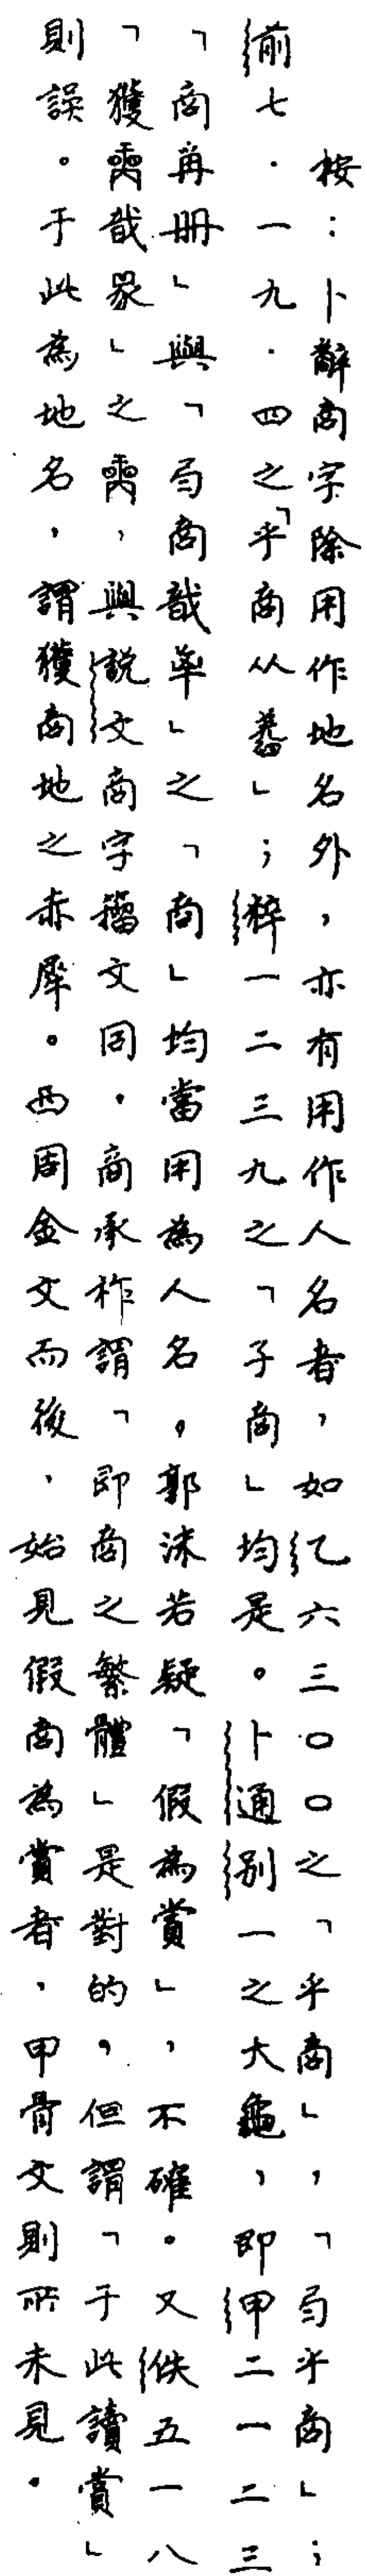 按：卜辭商字除用作地名外，亦有用作人名者，如乙六三〇〇之「乎商」，「勿乎商」；
前七·一九·四之「乎商从」；粹一二三九之「子商」均是。卜通別一之大龜，即甲二一二三
「商爯冊」與「勿商戠」之「商」均當用為人名。郭沫若疑「假為賞」，不確。又佚五一八
「獲商戠」之，與說文商字籀文同。商承祚謂「即商之繁體」是對的，但謂「于此讀賞」
則誤。于此為地名，謂獲商地之赤犀。西周金文而後，始見假商為賞者，甲骨文則所未見。